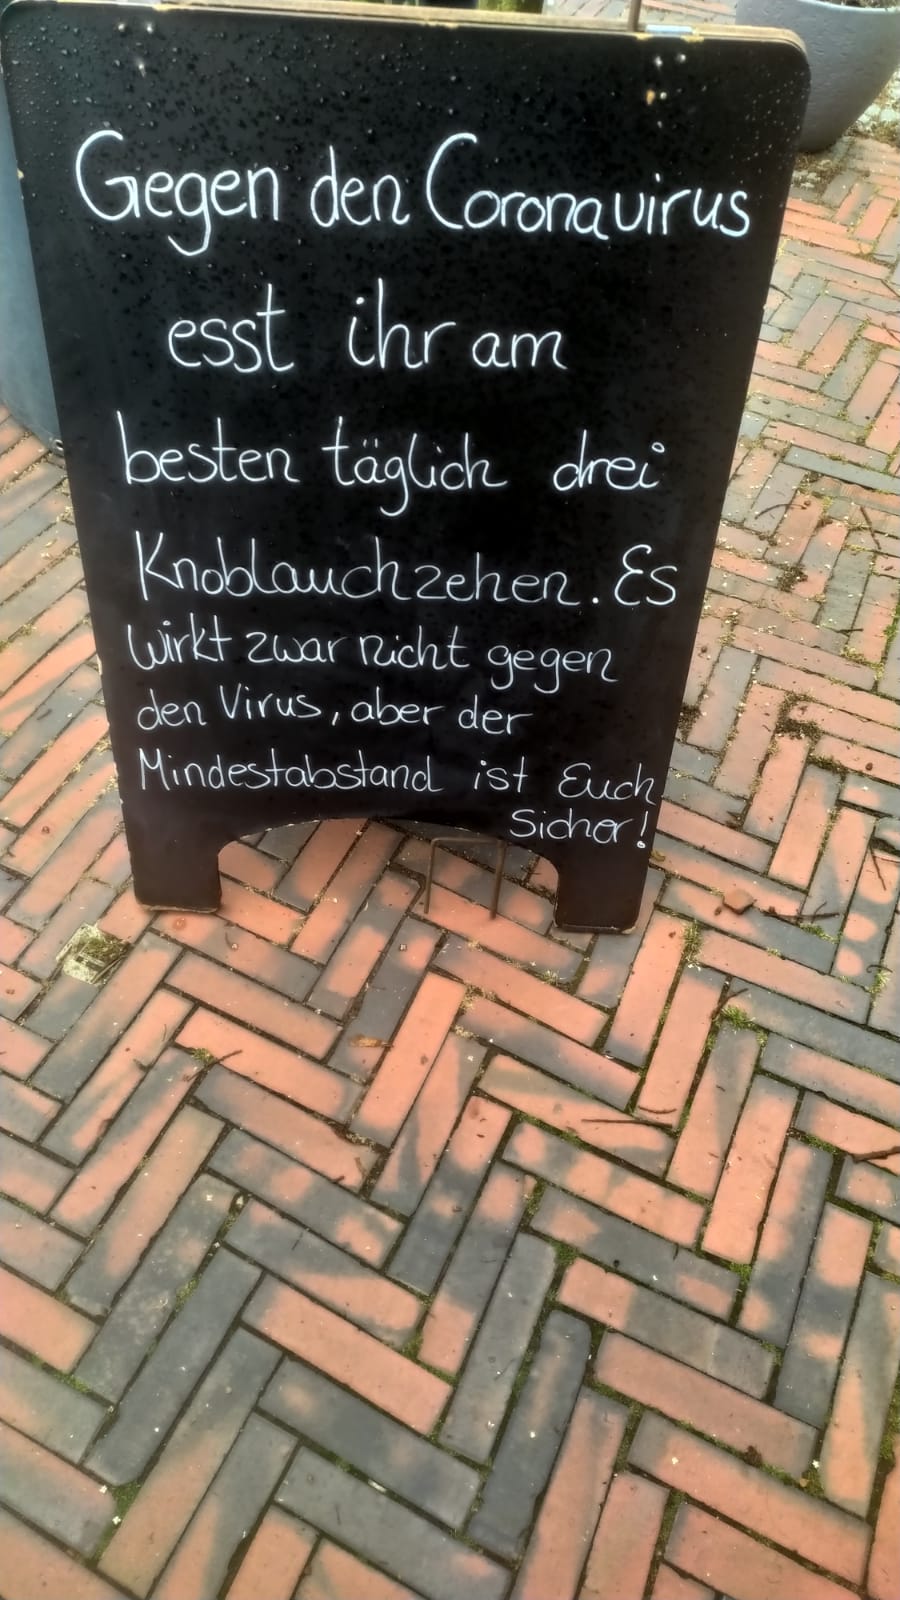 Gegen den Coronavirus
esst ihr am
besten täglich drei
Knoblauchzehen. Es
wirkt zwar nicht gegen
den Virus, aber der
Mindestabstand ist Euch
Sicher!